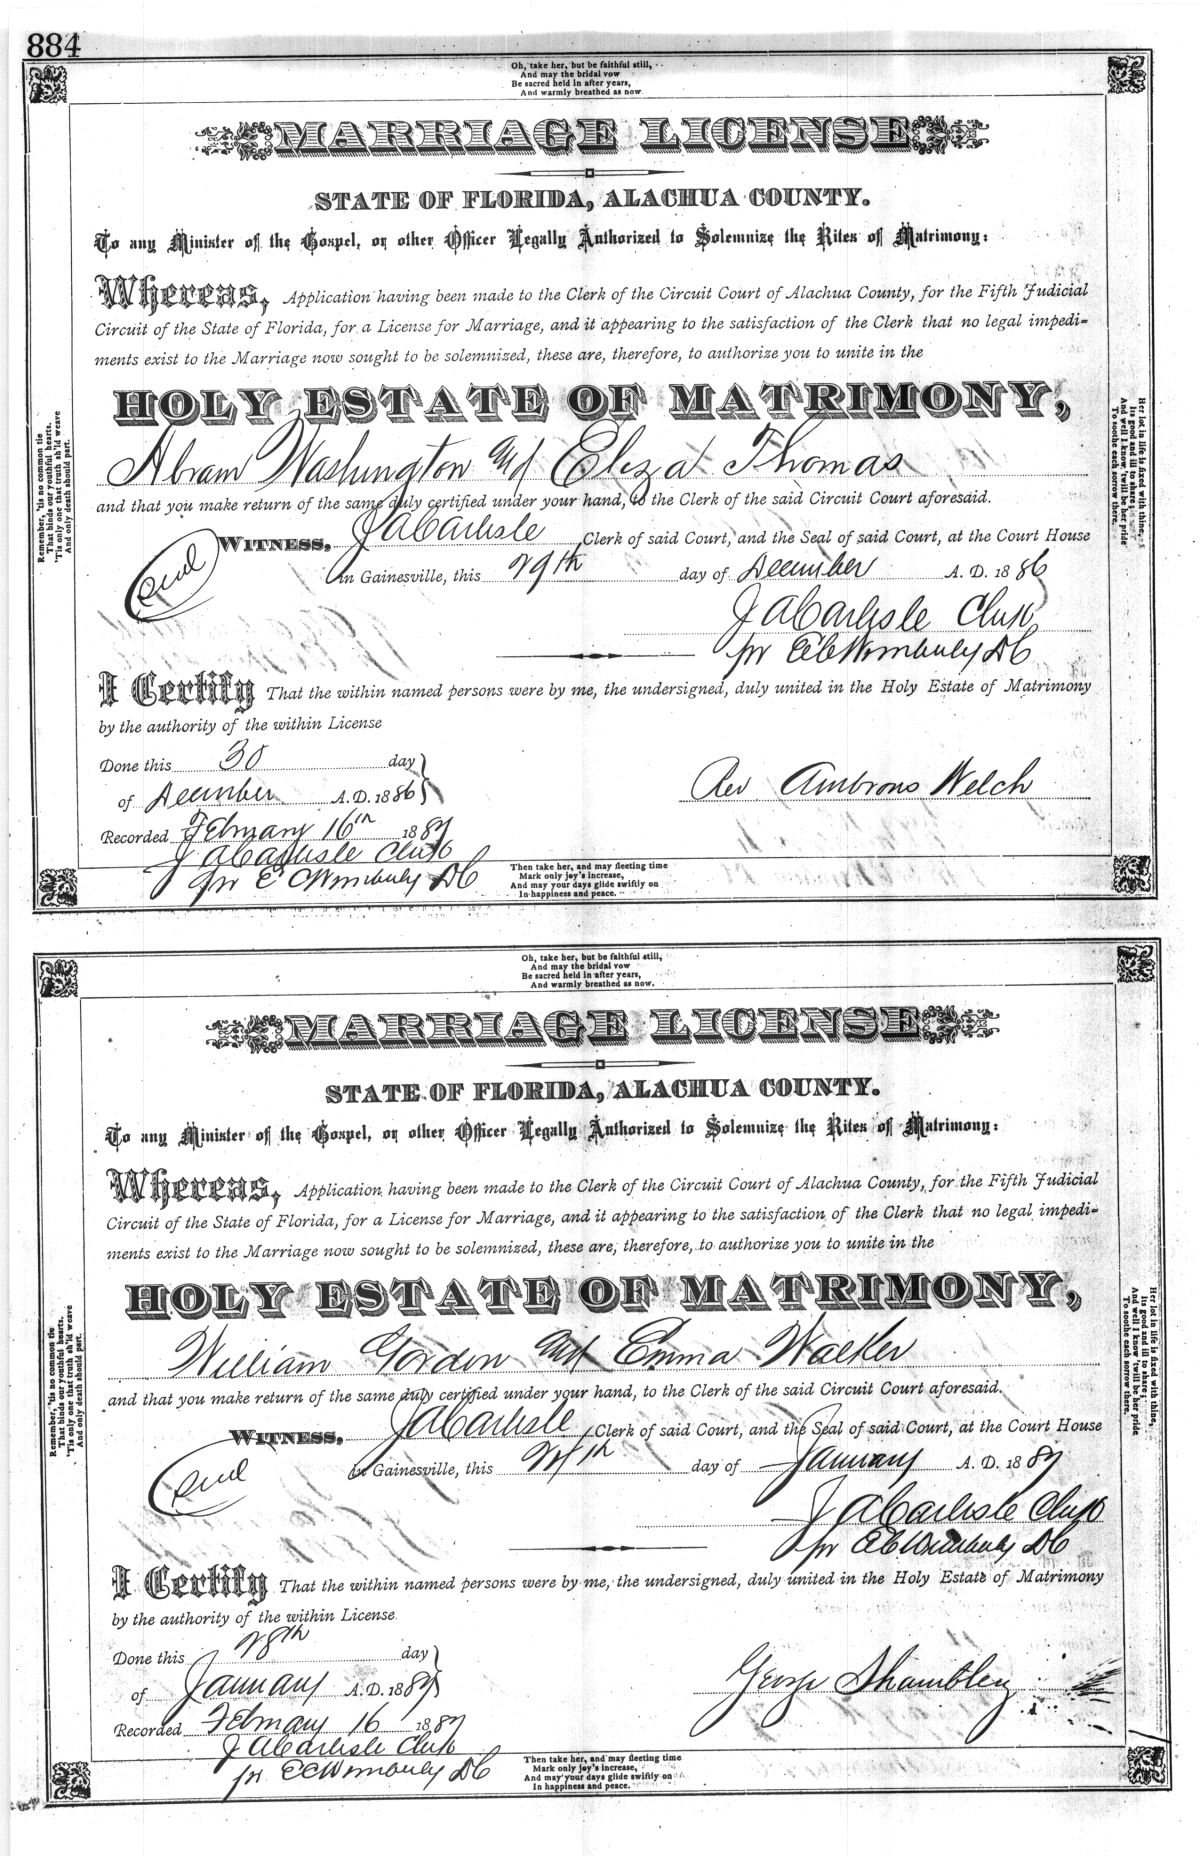 884
Oh, take her, but be faithful still,
And may the bridal vow
Be sacred held in after years,
And warmly breathed as now.
MARRIAGE LICENSE
STATE OF FLORIDA, ALACHUA COUNTY.
To any Minister of the Gospel, or other Officer Legally Authorized to Solemnize the Rites of Matrimony:
Whereas, Application having been made to the Clerk of the Circuit Court of Alachua County, for the Fifth Judicial
Circuit of the State of Florida, for a License for Marriage, and it appearing to the satisfaction of the Clerk that no legal impedi-
ments exist to the Marriage now sought to be solemnized, these are, therefore, to authorize you to unite in the
HOLY ESTATE OF MATRIMONY,
Abram Washington and Eliza Thomas
and that you make return of the same duly certified under your hand, to the Clerk of the said Circuit Court aforesaid.
WITNESS, J A Carlisle, Clerk of said Court, and the Seal of said Court, at the Court House
(seal) in Gainesville, this 29th day of December A. D. 1886
J A Carlisle Clerk
pr E C Wimberly DC
I Certify That the within named persons were by me, the undersigned, duly united in the Holy Estate of Matrimony
by the authority of the within License
Done this 30 day
of December A. D. 1886
Rev Ambrous Welch
Recorded February 16th 1887
J A Carlisle Clerk
pr E C Wimberly DC
Then take her, and may fleeting time
Mark only joy's increase,
And may your days glide swiftly on
In happiness and peace.
Remember, 'tis no common tie
That binds our youthful hearts.
'Tis only one that truth sh'ld weave
And only death should part.
Her lot in life is fixed with thine,
Its good and ill to share;
And well I know 'twill be her pride
To soothe each sorrow there.
Oh, take her, but be faithful still,
And may the bridal vow
Be sacred held in after years,
And warmly breathed as now.
MARRIAGE LICENSE
STATE OF FLORIDA, ALACHUA COUNTY.
To any Minister of the Gospel, or other Officer Legally Authorized to Solemnize the Rites of Matrimony:
Whereas, Application having been made to the Clerk of the Circuit Court of Alachua County, for the Fifth Judicial
Circuit of the State of Florida, for a License for Marriage, and it appearing to the satisfaction of the Clerk that no legal impedi-
ments exist to the Marriage now sought to be solemnized, these are, therefore, to authorize you to unite in the
HOLY ESTATE OF MATRIMONY,
William Gordon and Emma Walker
and that you make return of the same duly certified under your hand, to the Clerk of the said Circuit Court aforesaid.
WITNESS, J A Carlisle Clerk of said Court, and the Seal of said Court, at the Court House
(seal) in Gainesville, this 24th day of January A. D. 1887
J A Carlisle Clerk
pr E C Wimberly DC
I Certify That the within named persons were by me, the undersigned, duly united in the Holy Estate of Matrimony
by the authority of the within License
Done this 28th day
of January A. D. 1887
George Shambley
Recorded February 16 1887
J A Carlisle Clerk
pr E C Wimberly DC
Then take her, and may fleeting time
Mark only joy's increase,
And may your days glide swiftly on
In happiness and peace.
Remember, 'tis no common tie
That binds our youthful hearts.
'Tis only one that truth sh'ld weave
And only death should part.
Her lot in life is fixed with thine,
Its good and ill to share;
And well I know 'twill be her pride
To soothe each sorrow there.